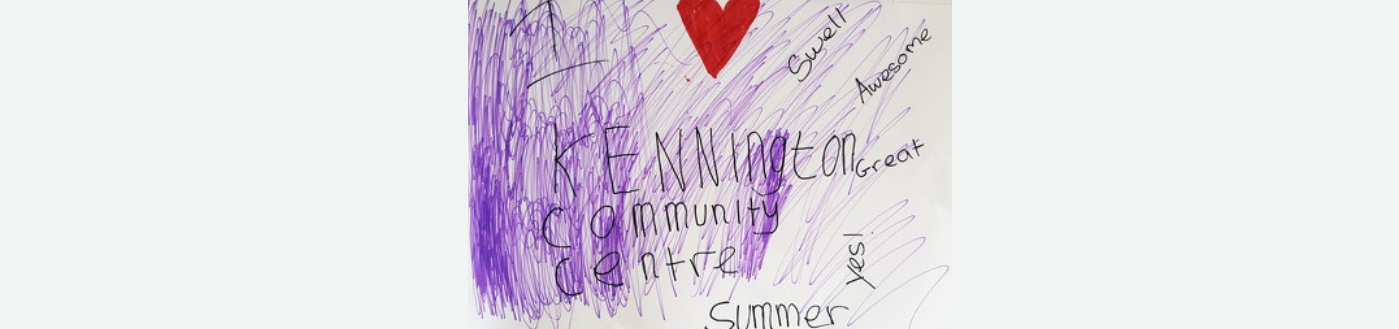 I
Swell
Awesome
KENNington
Great
community
centre
yes!
Summer